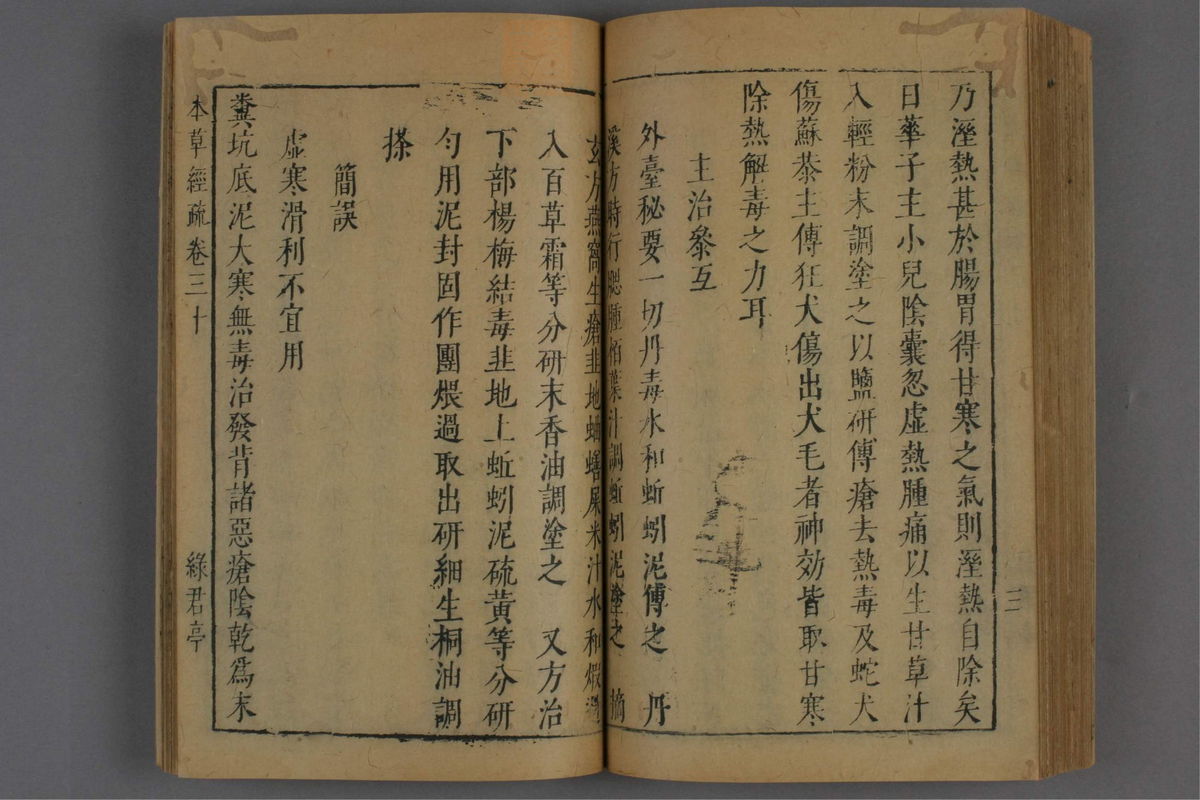 乃溼熱甚於腸胃得甘寒之氣則溼熱自除矣
日華子主小兒陰囊忽虛熱腫痛以生甘草汁
入輕粉末調塗之以鹽研傅瘡去熱毒及蛇犬
傷蘇恭主傅狂犬傷出犬毛者神效皆取甘寒
除熱解毒之力耳
主治叅互
外臺秘要一切丹毒水和蚯蚓泥傅之　丹
溪方時行腮腫柏葉汁調蚯蚓泥塗之　摘
玄方燕窩生瘡韭地蛐蟮屎米汁水和煆過
入百草霜等分研末香油調塗之　又方治
下部楊梅結毒韭地上蚯蚓泥硫黃等分研
勻用泥封固作團煨過取出研細生桐油調
搽
簡誤
虛寒滑利不宜用
糞坑底泥大寒無毒治發背諸惡瘡陰乾爲末
本草經疏卷三十
綠君亭
三